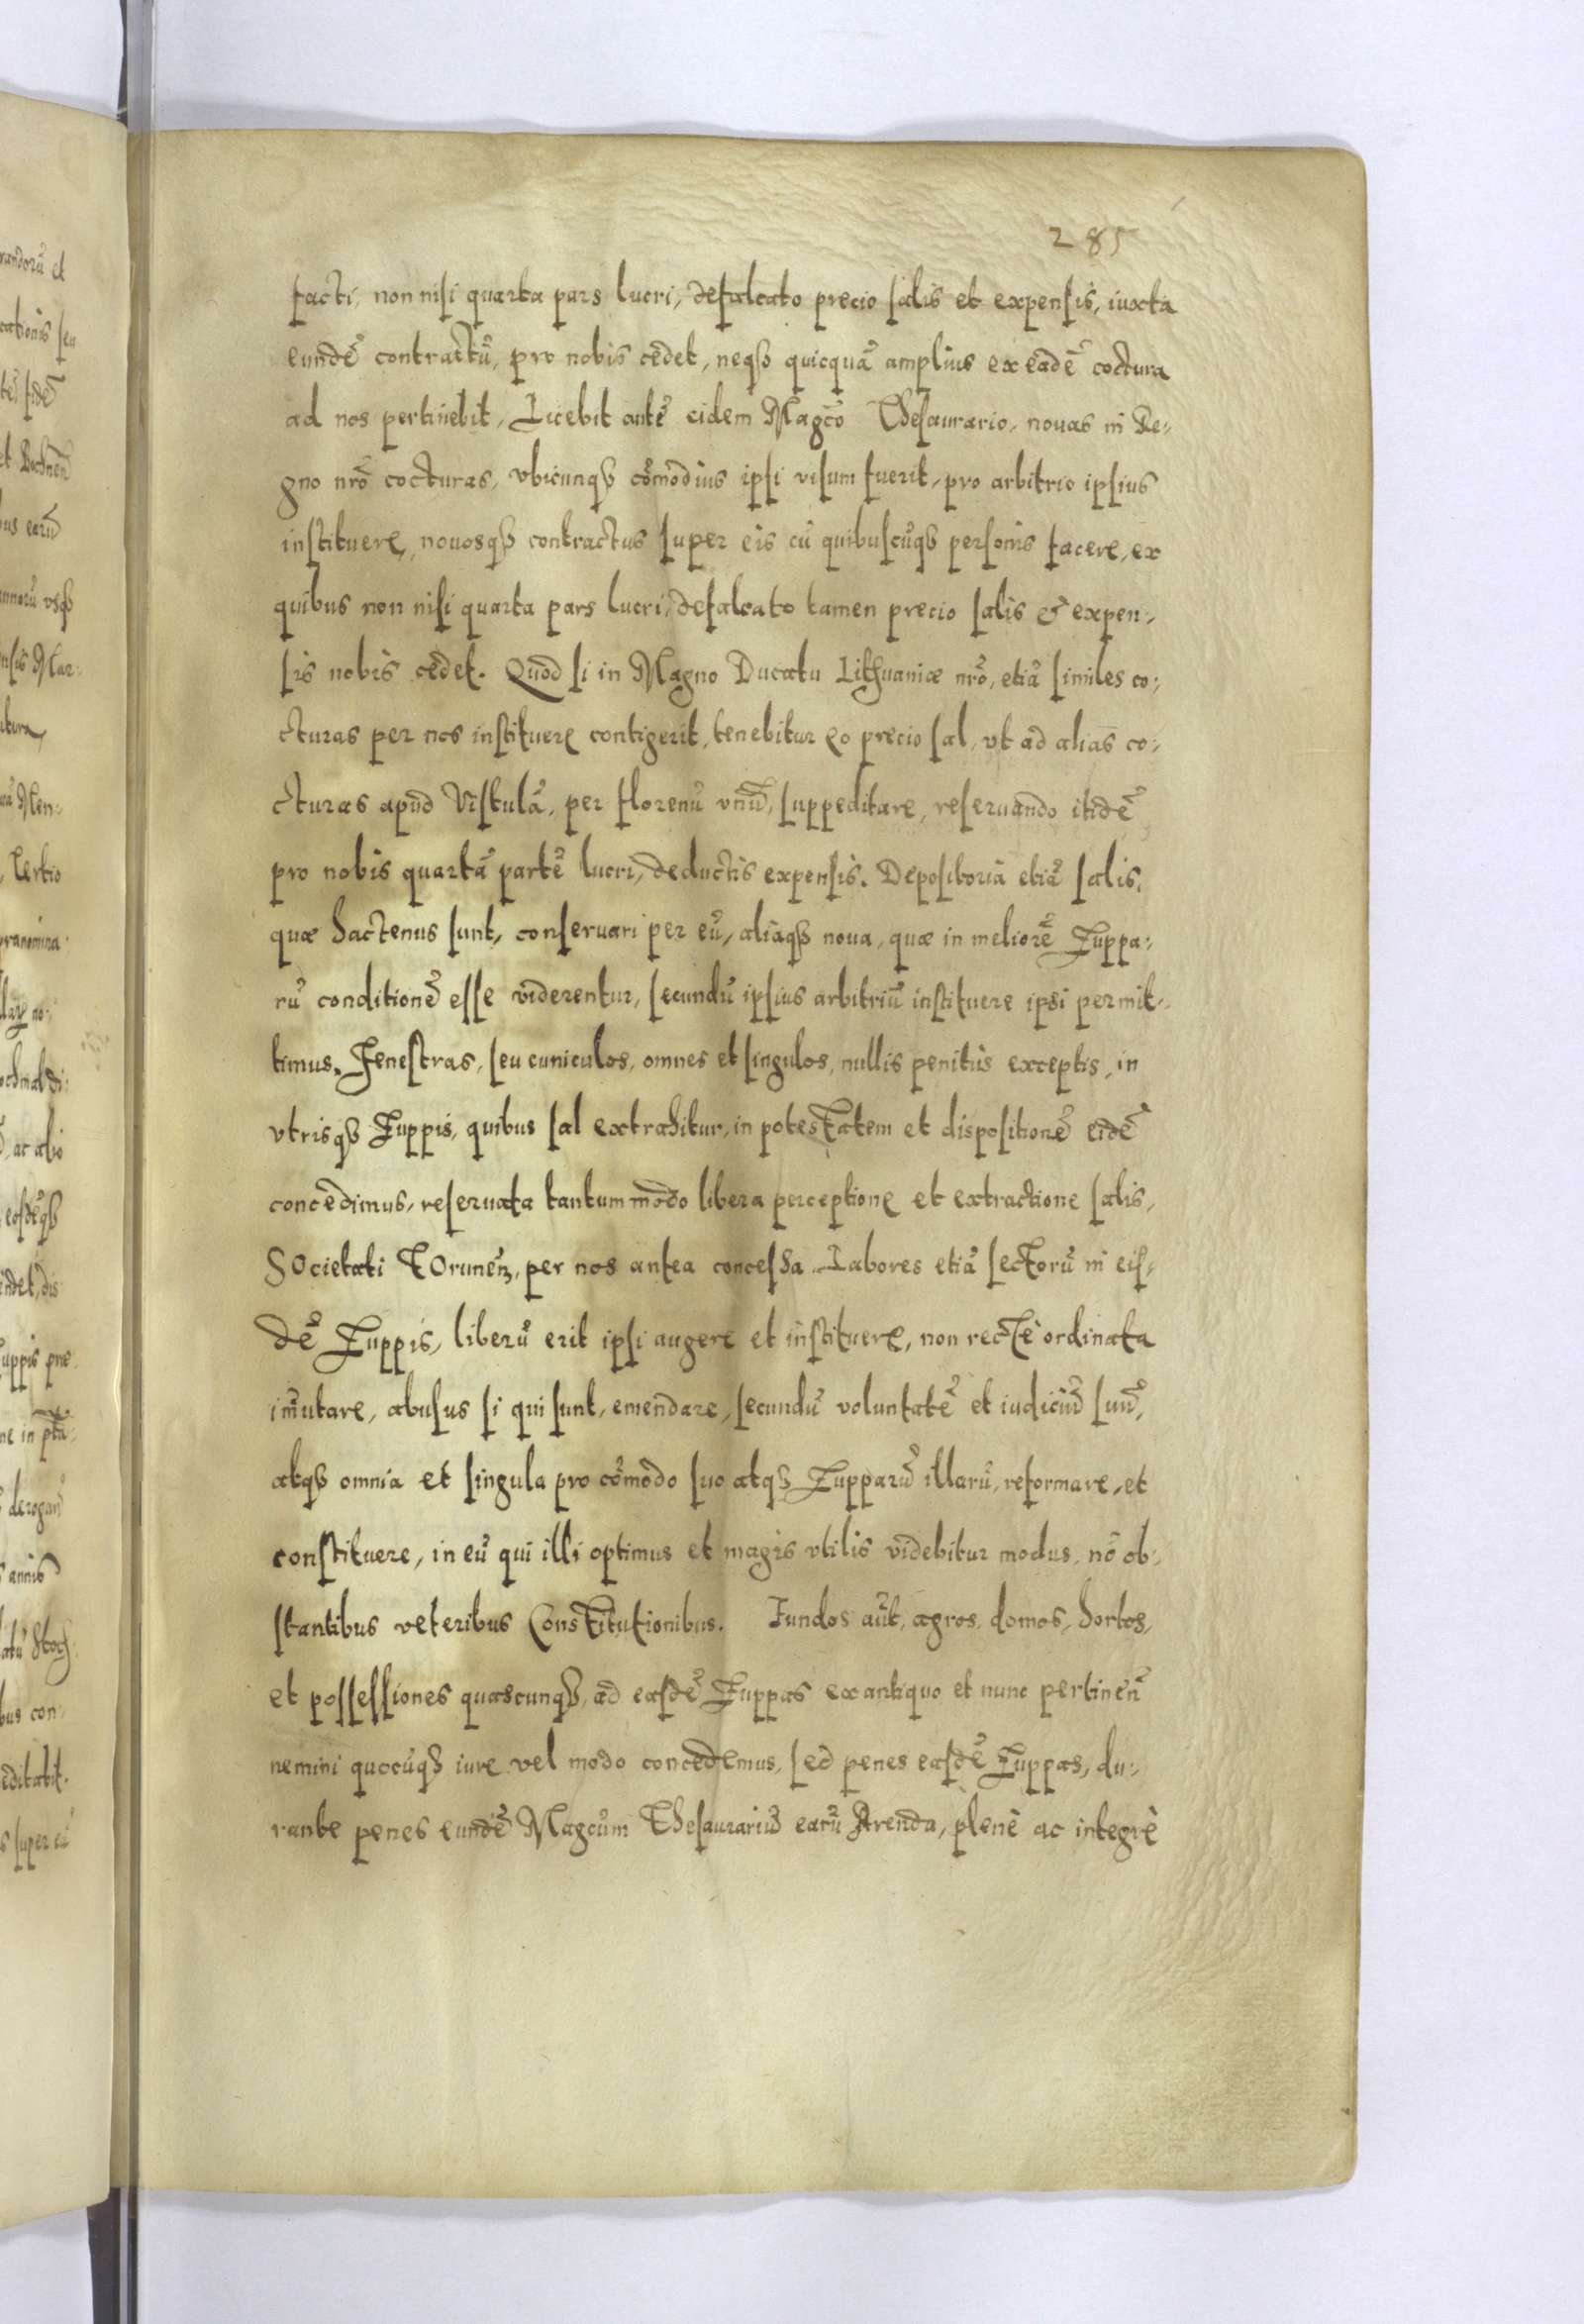 285
facti, non nisi quarta pars lucri, defalcato precio salis et expensis, iuxta
eundē contractū, pro nobis cedet, neqȝ quicquā amplius ex eadē coctura
ad nos pertinebit, Licebit autē eidem Magco Thesaurario, nouas in Re:
gno nrō cocturas, vbicunqȝ cōmodius ipsi visum fuerit, pro arbitrio ipsius
instituere, nouosqȝ contractus super eis cū quibuscūqȝ personis facere, ex
quibus non nisi quarta pars lucri, defalcato tamen precio salis & expen:
sis nobis cedet. Quod si in Magno Ducatu Lithuaniæ nrō, etiā similes co:
cturas per nos instituere contigerit, tenebitur eo precio sal, vt ad alias co:
cturas apud Vistulā, per florenū vnū, suppeditare, reseruando itidē
pro nobis quartā partē lucri, deductis expensis. Depositoria etiā salis,
quæ hactenus sunt, conseruari per eū, aliaqȝ noua, quæ in meliorē Zuppa:
rū conditionē esse viderentur, secundū ipsius arbitriū instituere ipsi permit:
timus. Fenestras, seu cuniculos, omnes et singulos, nullis penitùs exceptis, in
vtrisqȝ Zuppis, quibus sal extrahitur, in potestatem et dispositionē eidē
concedimus, reseruata tantummodo libera perceptione et extractione salis,
Societati Torunen, per nos antea concessa. Labores etiā sectorū in eis:
dē Zuppis, liberū erit ipsi augere et instituere, non rectè ordinata
im̄utare, abusus si qui sunt, emendare, secundū voluntatē et iudiciū suū,
atqȝ omnia et singula pro cōmodo suo atqȝ Zupparū illarū, reformare, et
constituere, in eū qui illi optimus et magis vtilis videbitur modus, nō ob:
stantibus veteribus Constitutionibus. Fundos aūt, agros, domos, hortos,
et possessiones quascunqȝ, ad easdē Zuppas ex antiquo et nunc pertinen̄
nemini quocūqȝ iure vel modo concedemus, sed penes easdē Zuppas, du:
rante penes eundē Magcūm Thesaurariū earū Arenda, plenè ac integrè